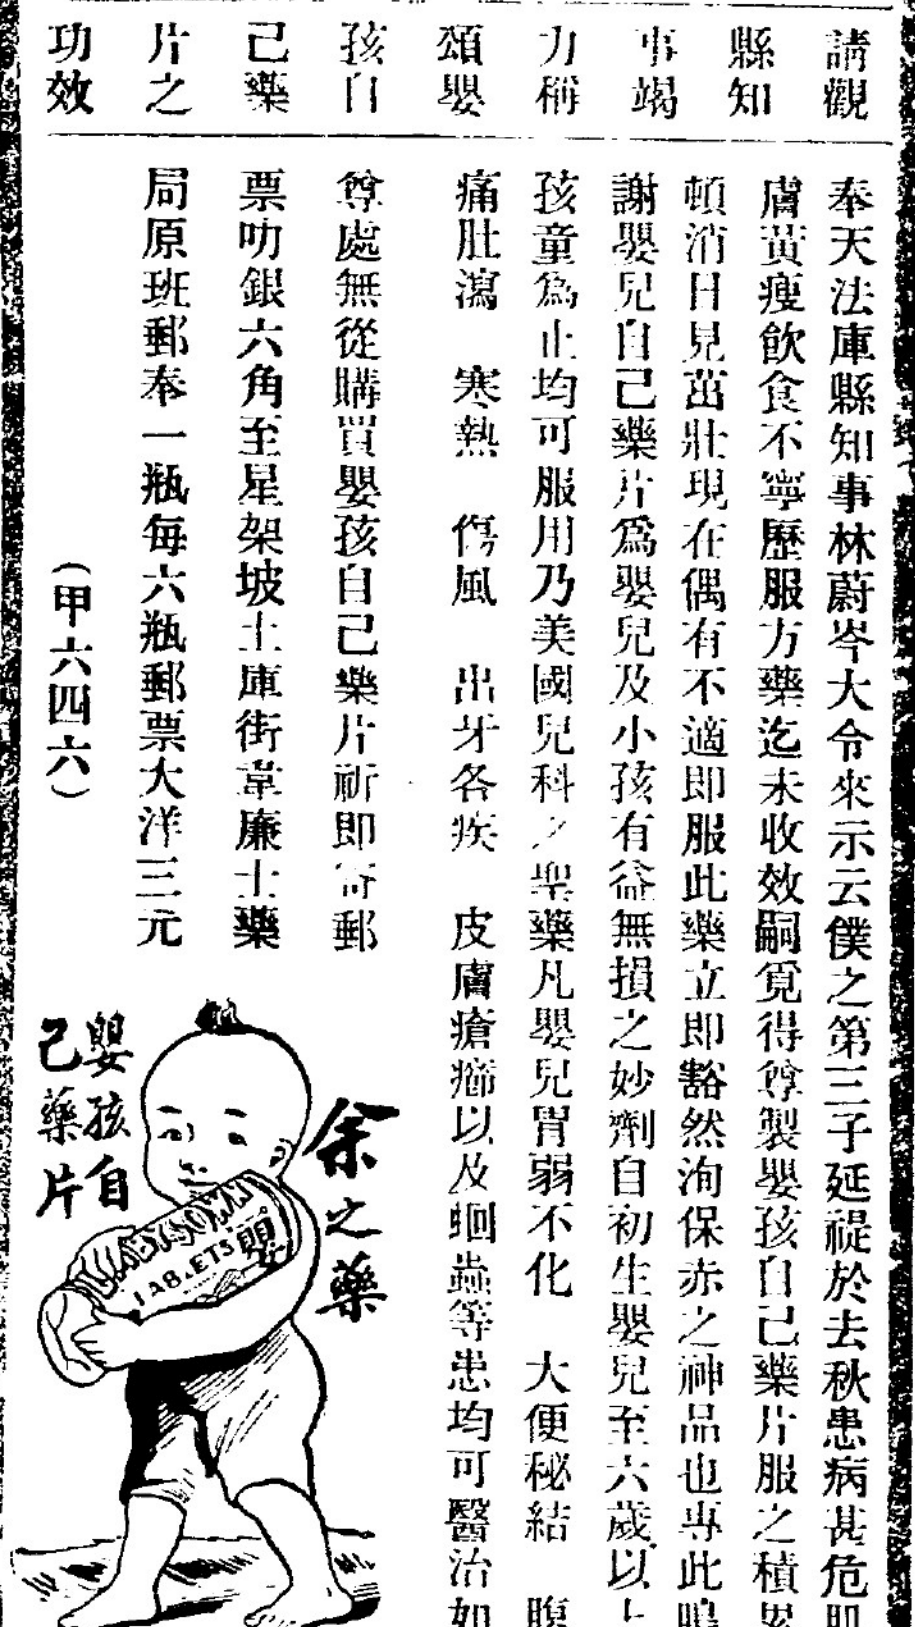 請觀
縣知
事竭
力稱
頌嬰
孩自
己藥
片之
功效
奉天法庫縣知事林蔚岑大令來示云僕之第三子延禔於去秋患病甚危肌
膚黃瘦飲食不寧歷服方藥迄未收效嗣覓得尊製嬰孩自己藥片服之積累
頓消日見茁壯現在偶有不適即服此藥立即豁然洵保赤之神品也專此鳴
謝嬰兒自己藥片爲嬰兒及小孩有益無損之妙劑自初生嬰兒至六歲以上
孩童為止均可服用乃美國兒科之聖藥凡嬰兒胃弱不化 大便秘結 腹
痛肚瀉 寒熱 傷風 出牙各疾 皮膚瘡癤以及蛔蟲等患均可醫治如
尊處無從購買嬰孩自己藥片祈即寄郵
票叻銀六角至星架坡土庫街韋廉士藥
局原班郵奉一瓶每六瓶郵票大洋三元
(甲六四六)
余之藥
嬰孩自
己藥片
TABLETS